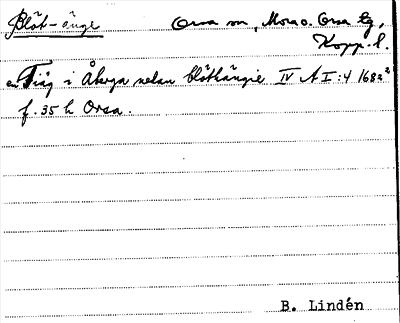 Blöt-änge Orsa sn, Mora o. Orsa tg,
Kopp. l.
en Tiäg i Åkryn nelan blöthängie IV A I:4 1682
f. 35 h Orsa.
B. Lindén